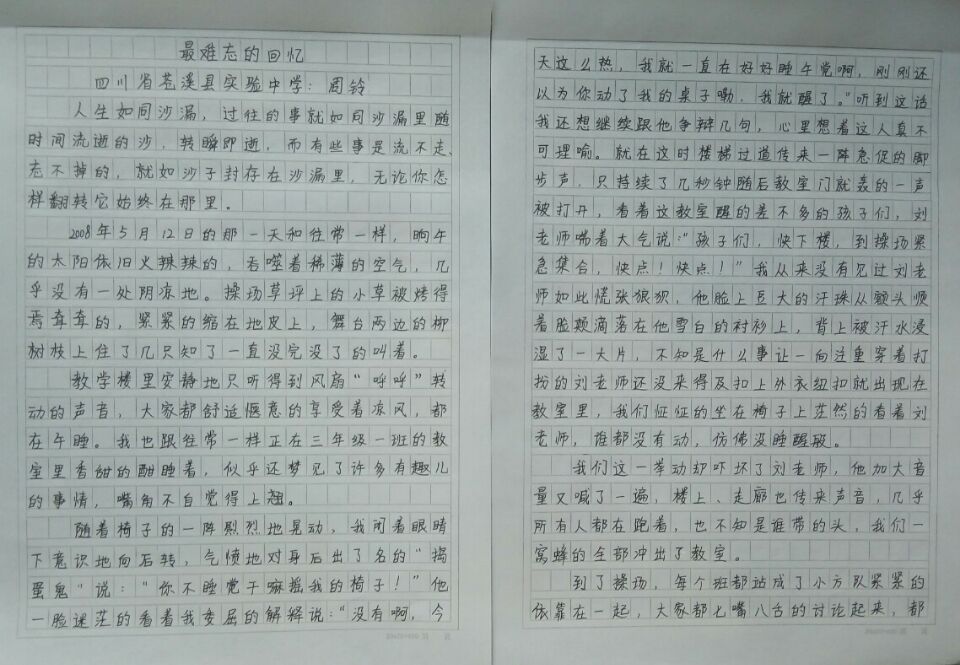 最难忘的回忆
四川省苍溪县实验中学：周铃
人生如同沙漏，过往的事就如同沙漏里随
时间流逝的沙，转瞬即逝，而有些事是流不走、
忘不掉的，就如沙子封存在沙漏里，无论你怎
样翻转它始终在那里。
2008年5月12日的那一天和往常一样，晌午
的太阳依旧火辣辣的，吞噬着稀薄的空气，几
乎没有一处阴凉地。操场草坪上的小草被烤得
焉耷耷的，紧紧的缩在地皮上，舞台两边的柳
树枝上住了几只知了一直没完没了的叫着。
教学楼里安静地只听得到风扇“呼呼”转
动的声音，大家都舒适惬意的享受着凉风，都
在午睡。我也跟往常一样正在三年级一班的教
室里香甜的酣睡着，似乎还梦见了许多有趣儿
的事情，嘴角不自觉得上翘。
随着椅子的一阵剧烈地晃动，我闭着眼睛
下意识地向后转，气愤地对身后出了名的“捣
蛋鬼”说：“你不睡觉干嘛摇我的椅子！”他
一脸迷茫的看着我委屈的解释说：“没有啊，今
天这么热，我就一直在好好睡午觉啊，刚刚还
以为你动了我的桌子嘞，我就醒了。”听到这话
我还想继续跟他争辩几句，心里想着这人真不
可理喻。就在这时楼梯过道传来一阵急促的脚
步声，只持续了几秒钟随后教室门就轰的一声
被打开，看着这教室醒的差不多的孩子们，刘
老师喘着大气说：“孩子们，快下楼，到操场紧
急集合，快点！快点！”我从来没有见过刘老
师如此慌张狼狈，他脸上豆大的汗珠从额头顺
着脸颊滴落在他雪白的衬衫上，背上被汗水浸
湿了一大片，不知是什么事让一向注重穿着打
扮的刘老师还没来得及扣上外衣纽扣就出现在
教室里，我们怔怔的坐在椅子上茫然的看着刘
老师，谁都没有动，仿佛没睡醒般。
我们这一举动却吓坏了刘老师，他加大音
量又喊了一遍，楼上、走廊也传来声音，几乎
所有人都在跑着，也不知是谁带的头，我们一
窝蜂的全部冲出了教室。
到了操场，每个班都站成了小方队紧紧的
依靠在一起，大家都七嘴八舌的讨论起来，都